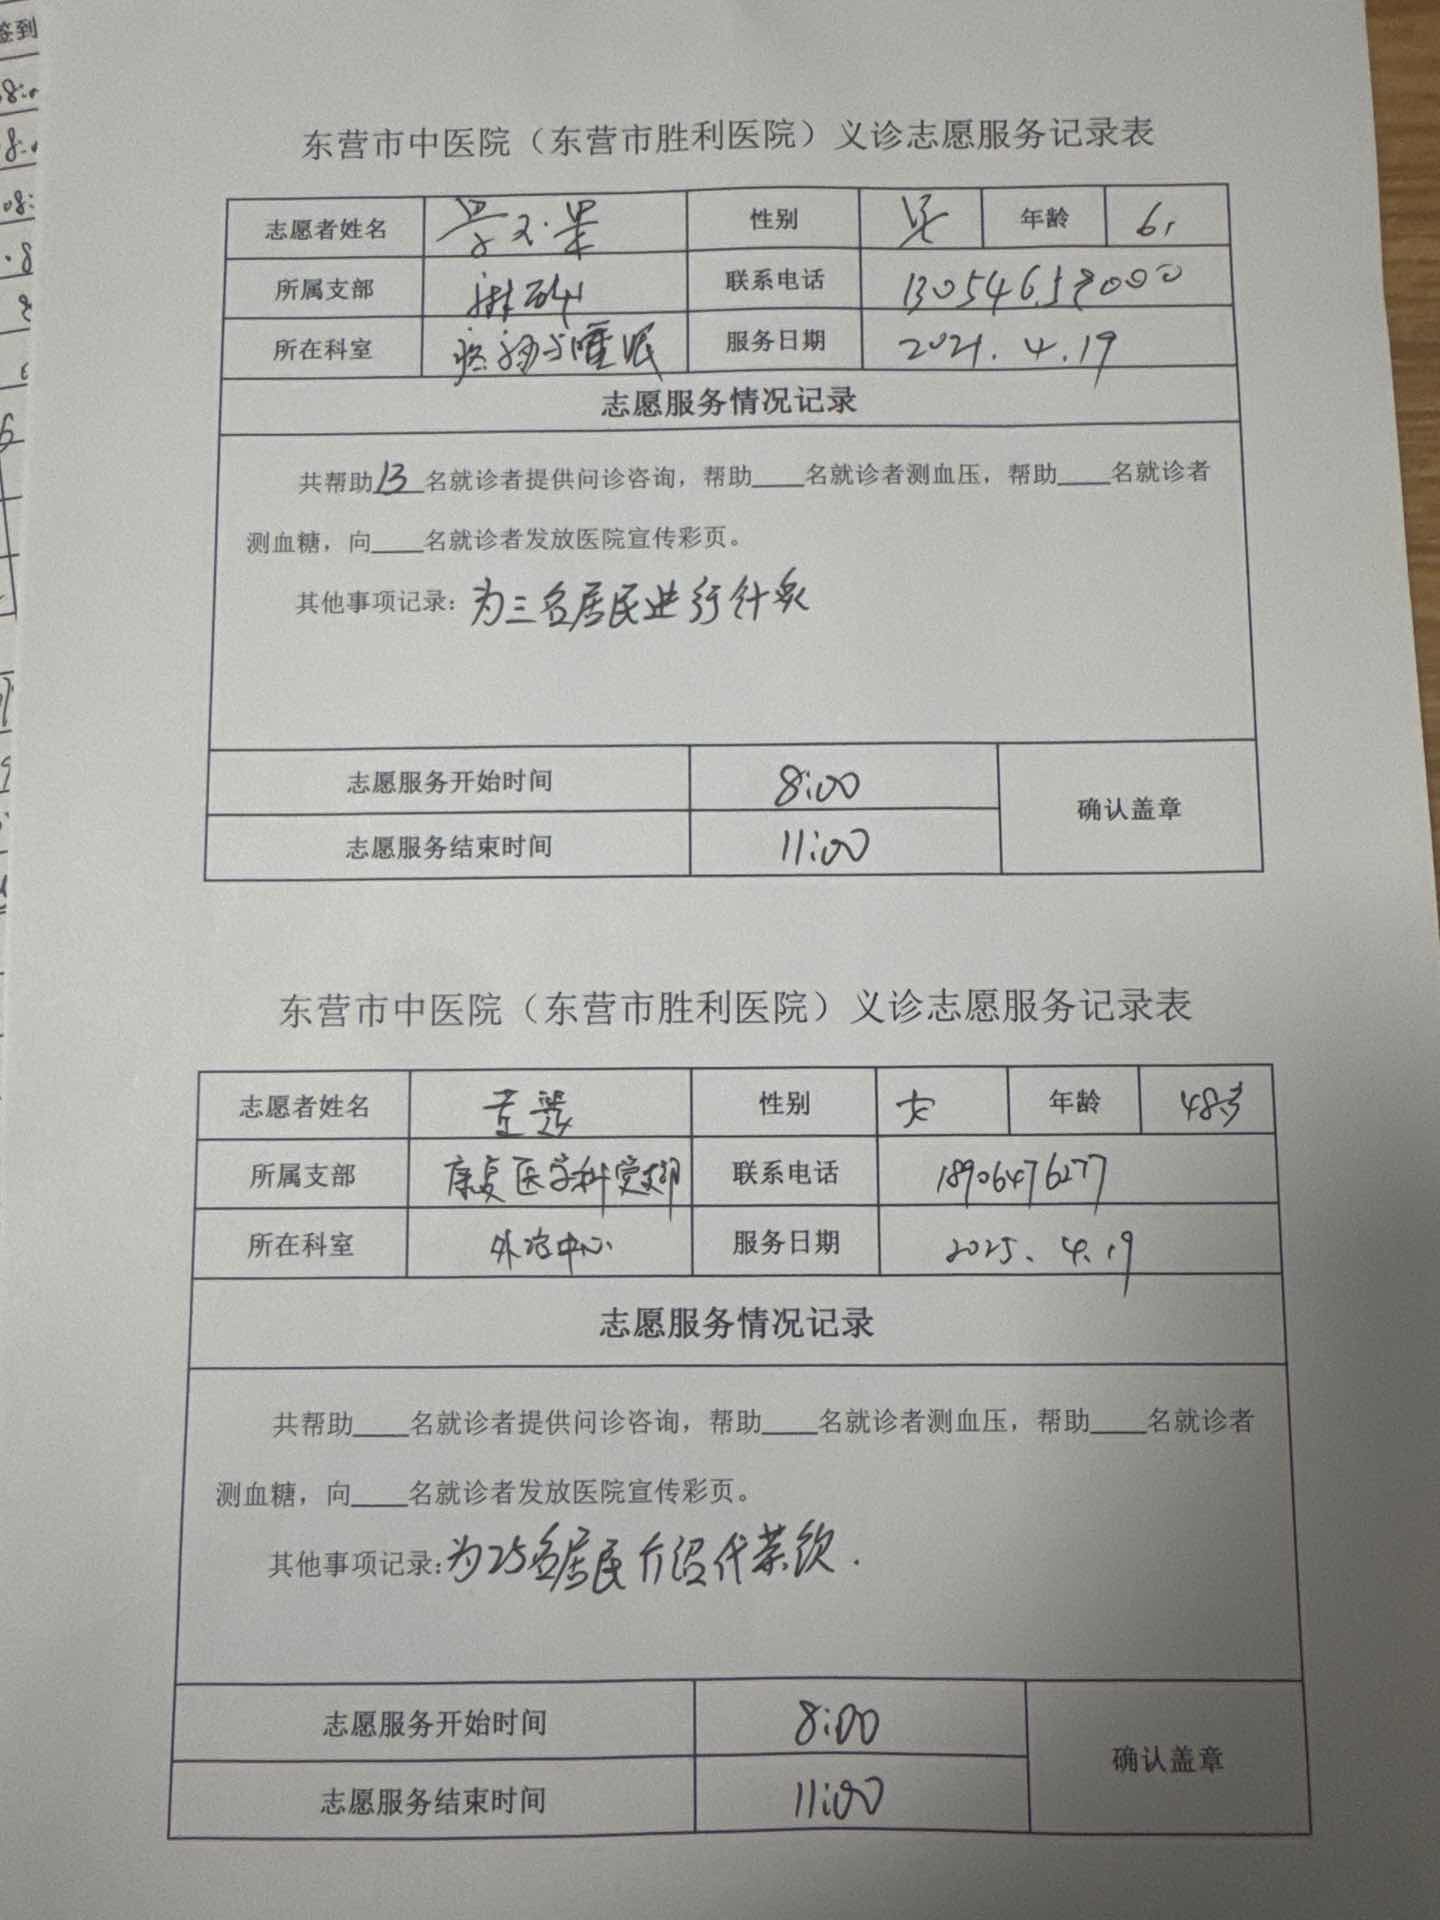 签到
东营市中医院（东营市胜利医院）义诊志愿服务记录表
志愿者姓名 性别 男 年龄 61
所属支部 联系电话
所在科室 与睡眠 服务日期 2021.4.19
志愿服务情况记录
共帮助13名就诊者提供问诊咨询，帮助____名就诊者测血压，帮助____名就诊者
测血糖，向____名就诊者发放医院宣传彩页。
其他事项记录：为三名居民进行针灸
志愿服务开始时间 8:00
确认盖章
志愿服务结束时间 11:00
东营市中医院（东营市胜利医院）义诊志愿服务记录表
志愿者姓名 性别 女 年龄 48岁
所属支部 康复医学科党支部 联系电话 18906476277
所在科室 外治中心 服务日期 2025.4.19
志愿服务情况记录
共帮助____名就诊者提供问诊咨询，帮助____名就诊者测血压，帮助____名就诊者
测血糖，向____名就诊者发放医院宣传彩页。
其他事项记录：为25名居民介绍代茶饮.
志愿服务开始时间 8:00
确认盖章
志愿服务结束时间 11:00